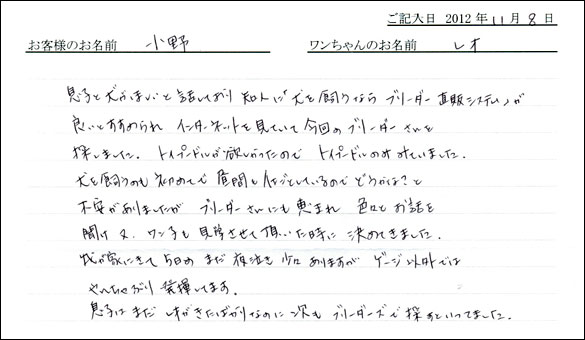 ご記入日 2012年11月8日
お客様のお名前 小野 ワンちゃんのお名前 レオ
息子と犬がほしいと話しており 知人に「犬を飼うなら ブリーダー直販システム」が
良いとすすめられ インターネットを見ていて今回のブリーダーさんを
探しました。トイプードルが欲しかったので トイプードルのみ みていました。
犬を飼うのも 初めてで 昼間も 仕事をしているので どうかな?と
不安がありましたが ブリーダーさんにも 恵まれ 色々と お話を
聞け 又、ワン子も 見学させて 頂いた時に 決めてきました。
我が家にきて 5日め まだ 夜泣き 少々 ありますが ゲージ以外では
やんちゃぶり 発揮してます。
息子は まだ レオがきたばかりなのに 次も ブリーダーズで 探すといってました。